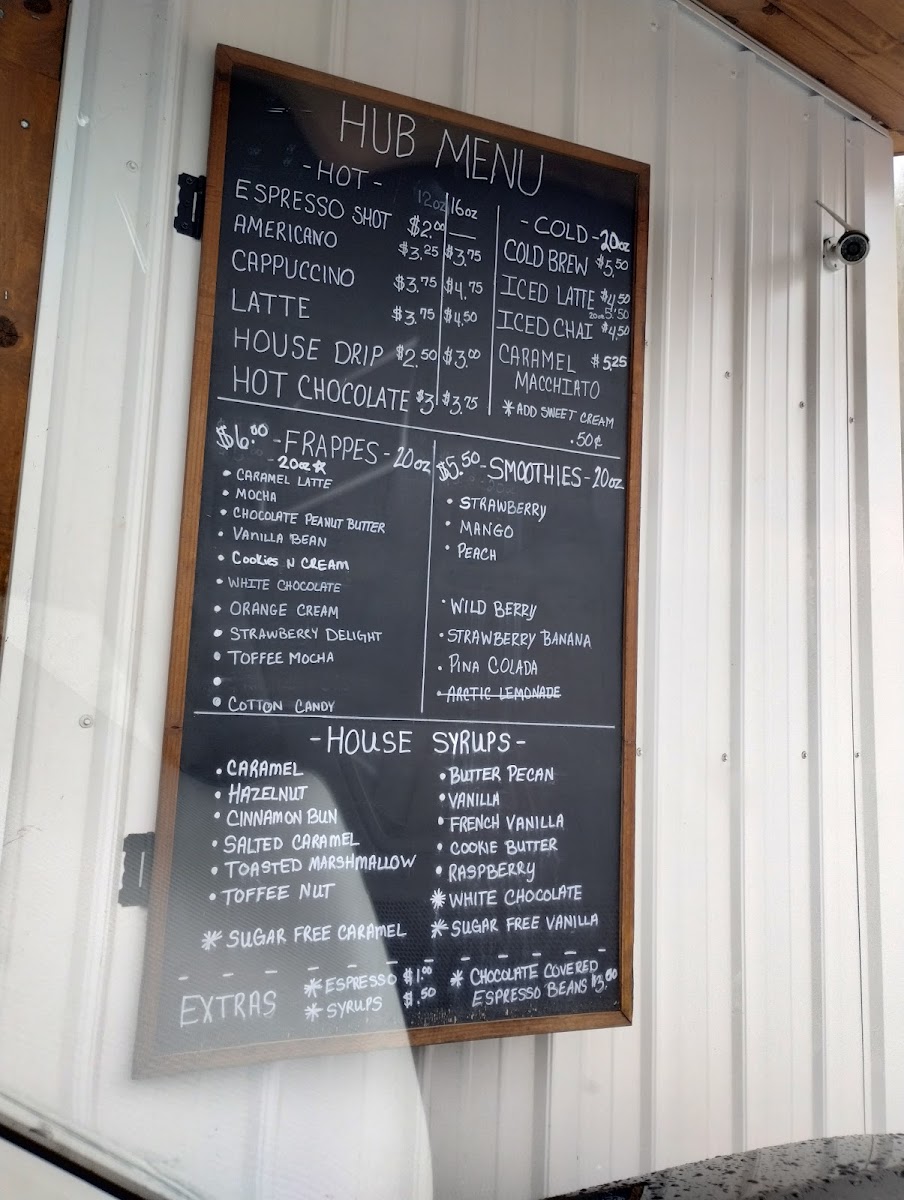 HUB MENU
- HOT -
12oz 16oz
ESPRESSO SHOT $2.00 —
AMERICANO $3.25 $3.75
CAPPUCCINO $3.75 $4.75
LATTE $3.75 $4.50
HOUSE DRIP $2.50 $3.00
HOT CHOCOLATE $3 $3.75
- COLD - 20oz
COLD BREW $5.50
ICED LATTE $4.50
20oz 5.50
ICED CHAI $4.50
CARAMEL $5.25
MACCHIATO
* ADD SWEET CREAM
.50¢
$6.00 - FRAPPES - 20oz
- 20oz ☆
• CARAMEL LATTE
• MOCHA
• CHOCOLATE PEANUT BUTTER
• VANILLA BEAN
• COOKIES N CREAM
• WHITE CHOCOLATE
• ORANGE CREAM
• STRAWBERRY DELIGHT
• TOFFEE MOCHA
•
• COTTON CANDY
$5.50 - SMOOTHIES - 20oz
• STRAWBERRY
• MANGO
• PEACH
• WILD BERRY
• STRAWBERRY BANANA
• PINA COLADA
• ARCTIC LEMONADE
- HOUSE SYRUPS -
• CARAMEL
• HAZELNUT
• CINNAMON BUN
• SALTED CARAMEL
• TOASTED MARSHMALLOW
• TOFFEE NUT
* SUGAR FREE CARAMEL
• BUTTER PECAN
• VANILLA
• FRENCH VANILLA
• COOKIE BUTTER
• RASPBERRY
* WHITE CHOCOLATE
* SUGAR FREE VANILLA
EXTRAS
* ESPRESSO $1.00
* SYRUPS $.50
* CHOCOLATE COVERED
ESPRESSO BEANS $3.00